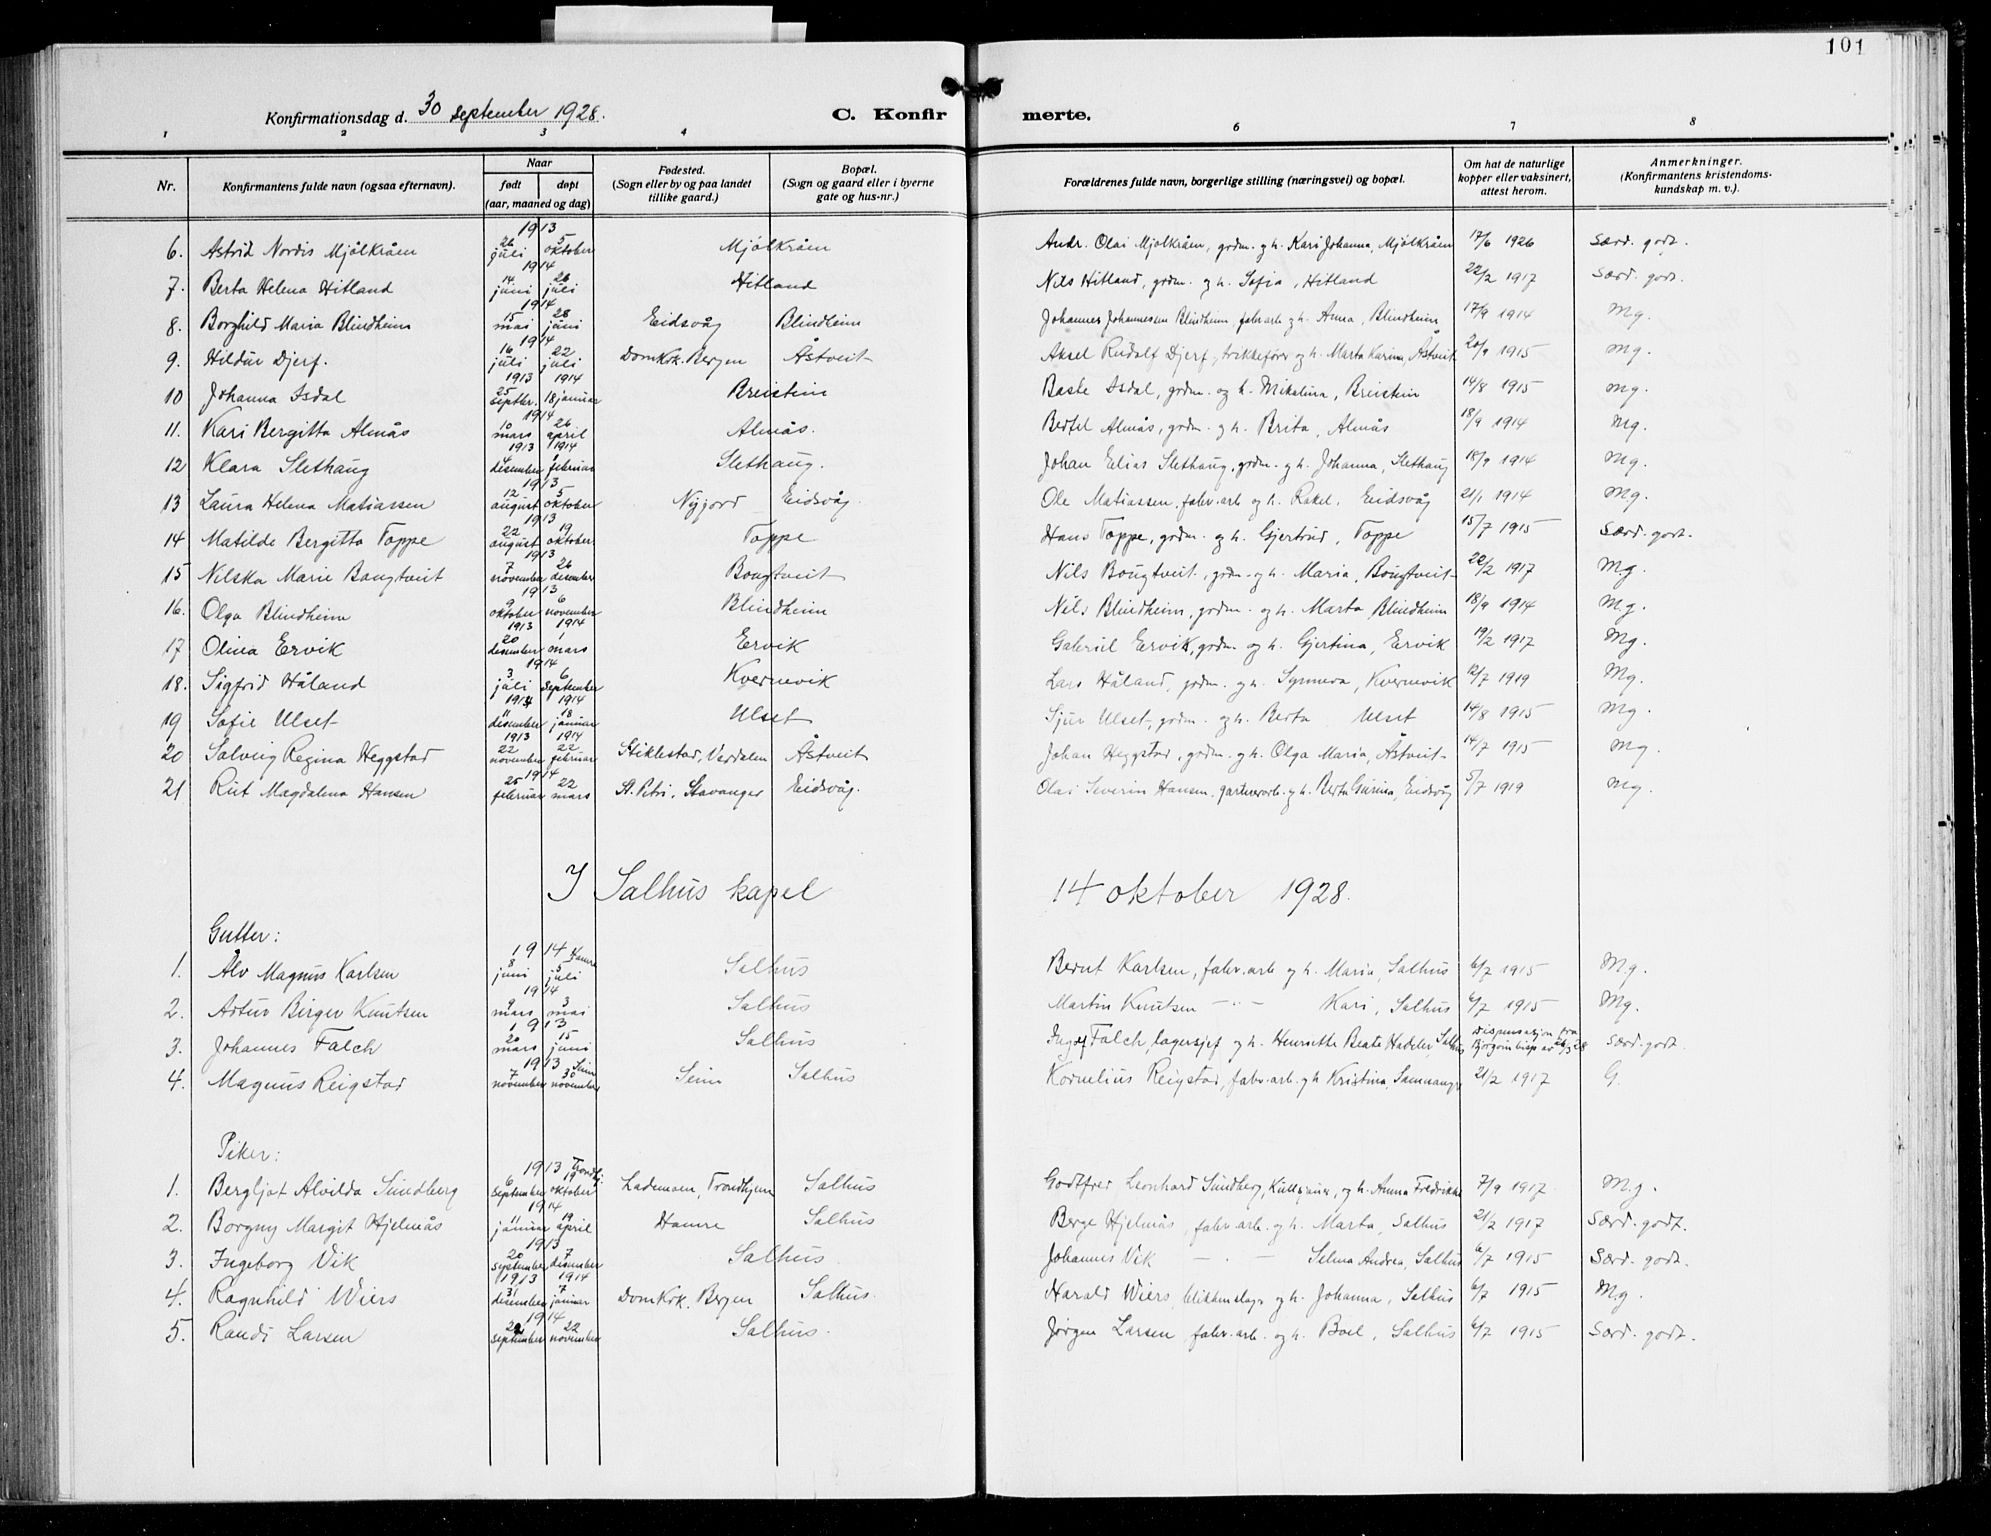 101
Konfirmationsdag d. 30 september 1928.
C. Konfirmerte.
1 2 3 4 6 7 8
Nr.
Konfirmantens fulde navn (ogsaa efternavn).
Naar
født døpt
(aar, maaned og dag)
Fødested.
(Sogn eller by og paa landet
tillike gaard.)
Bopæl.
(Sogn og gaard eller i byerne
gate og hus-nr.)
Forældrenes fulde navn, borgerlige stilling (næringsvei) og bopæl.
Om hat de naturlige
kopper eller vaksinert,
attest herom.
Anmerkninger.
(Konfirmantens kristendoms-
kundskap m. v.).
1913
6. Astrid Nordis Mjølkråen 26 juli 5 oktober Mjølkråen Andr. Olai Mjølkråen, grdm. g h. Kari Johanna, Mjølkråen 17/6 1926 Særd. godt.
1914
7. Berta Helena Hitland 14 juni 26 juli Hitland Nils Hitland, grdm. og h. Sofia, Hitland 22/2 1917 Særd. godt.
1914
8. Borghild Maria Blindheim 15 mai 28 juni Eidsvåg Blindheim Johannes Johannessen Blindheim, fabr.arb. g h. Anna, Blindheim 17/9 1914 Mg.
1914
9. Hildur Djerf. 16 juli 22 juli Domkrk. Bergen Åstveit Aksel Rudolf Djerf, trikkefører og h. Marta Karina, Åstveit 20/9 1915 Mg.
1913 1914
10 Johanna Isdal 25 septbr. 18 januar Breistein Baste Isdal, grdm. og h. Mikalina, Breistein 14/8 1915 Mg.
1914
11. Kari Bergitta Almås 10 mars 26 april Almås. Bertel Almås, grdm. g h. Brita, Almås 18/9 1914 Mg.
1913 1914
12 Klara Slethaug 4 desember 1 februar Slethaug. Johan Elias Slethaug, grdm. g h. Johanna, Slethaug 18/9 1914 Mg.
1913
13 Laura Helena Matiassen 12 august 5 oktober Nygord Eidsvåg. Ole Matiassen, fabr. arb og h. Rakel, Eidsvåg 21/1 1914 Mg.
1913
14 Matilde Bergitta Toppe 22 august 19 oktober Toppe Hans Toppe, grdm. og h. Gjertrud, Toppe 15/7 1915 Særd. godt.
1913
15 Nilska Marie Bougtveit 7 november 26 desember Bougtveit Nils Bougtveit, grdm. og h. Maria, Bougtveit 22/2 1917 Mg.
1913
16. Olga Blindheim 9 oktober 6 november Blindheim Nils Blindheim, grdm. og h. Marta Blindheim 18/9 1914 M.g.
1913 1914
17 Olina Ervik 20 desember 1 mars Ervik Gabriel Ervik, grdm. og h. Gjertina, Ervik 19/2 1917 Mg.
1914
18. Sigfrid Håland 3 juli 6 september Kvernevik Lars Håland, grdm. og h. Synneva, Kvernevik 12/7 1919 Mg.
1913 1914
19 Sofie Ulset 11 desember 18 januar Ulset Sjur Ulset, grdm. og h. Berta Ulset 14/8 1915 Mg.
1913 1914
20 Solveig Regina Heggstad 22 november 22 februar Stiklestad, Verdalen Åstveit Johan Heggstad, grdm. g h. Olga Maria, Åstveit 14/7 1915 Mg.
1914
21 Rut Magdalena Hansen 25 februar 22 mars St. Petri, Stavanger Eidsvåg. Olai Severin Hansen, gartnerarb. g h. Berta Gurina, Eidsvåg 5/7 1919 Mg.
I Salhus kapel 14 oktober 1928.
Gutter:
1914 Hamre
1. Alv Magnus Karlsen 8 juni 5 juli Salhus Bernt Karlsen, fabr. arb og h. Maria, Salhus 6/7 1915 Mg.
1914
2. Artur Birger Knutsen 9 mars 3 mai Salhus Martin Knutsen — " — Kari, Salhus 6/7 1915 Mg.
1913
3. Johannes Falch 20 mars 15 juni Salhus Ingolf Falch, lagersjef og h. Henriette Beate Hadeler Salhus Dispensasjon fra Bjørgvin bisp av 26/3 28 Særd. godt.
1913 Seim
4. Magnus Reigstad 7 november 30 november Seim Salhus Kornelius Reigstad, fabr. arb. g h Kristina, Samnanger 21/2 1917 G.
Piker:
1913 Trondhj.
1. Bergljot Alvilda Sundberg 6 september 19 oktober Lademoen, Trondhjem Salhus Godtfred Leonhard Sundberg, Kullsjauer, og h. Anna Fredrikke 7/9 1917 M.g.
1914
2. Borgny Margit Hjelmås 11 januar 19 april Hamre Salhus Berge Hjelmås, fabr. arb. og h. Marta, Salhus 21/2 1917 Særd. godt.
1913
3. Ingeborg Vik 20 september 7 desember Salhus Johannes Vik — — Selma Andrea, Salhus 6/7 1915 Særd. godt.
1913 1914
4. Ragnhild Wiers 31 desember 7 januar Domkrk. Bergen Salhus. Harald Wiers, blikkenslager og h. Johanna, Salhus 6/7 1915 Mg.
1914
5. Randi Larsen september 22 november Salhus. Jørgen Larsen fabr. arb. og h. Boel, Salhus 6/7 1915 Særd. godt.